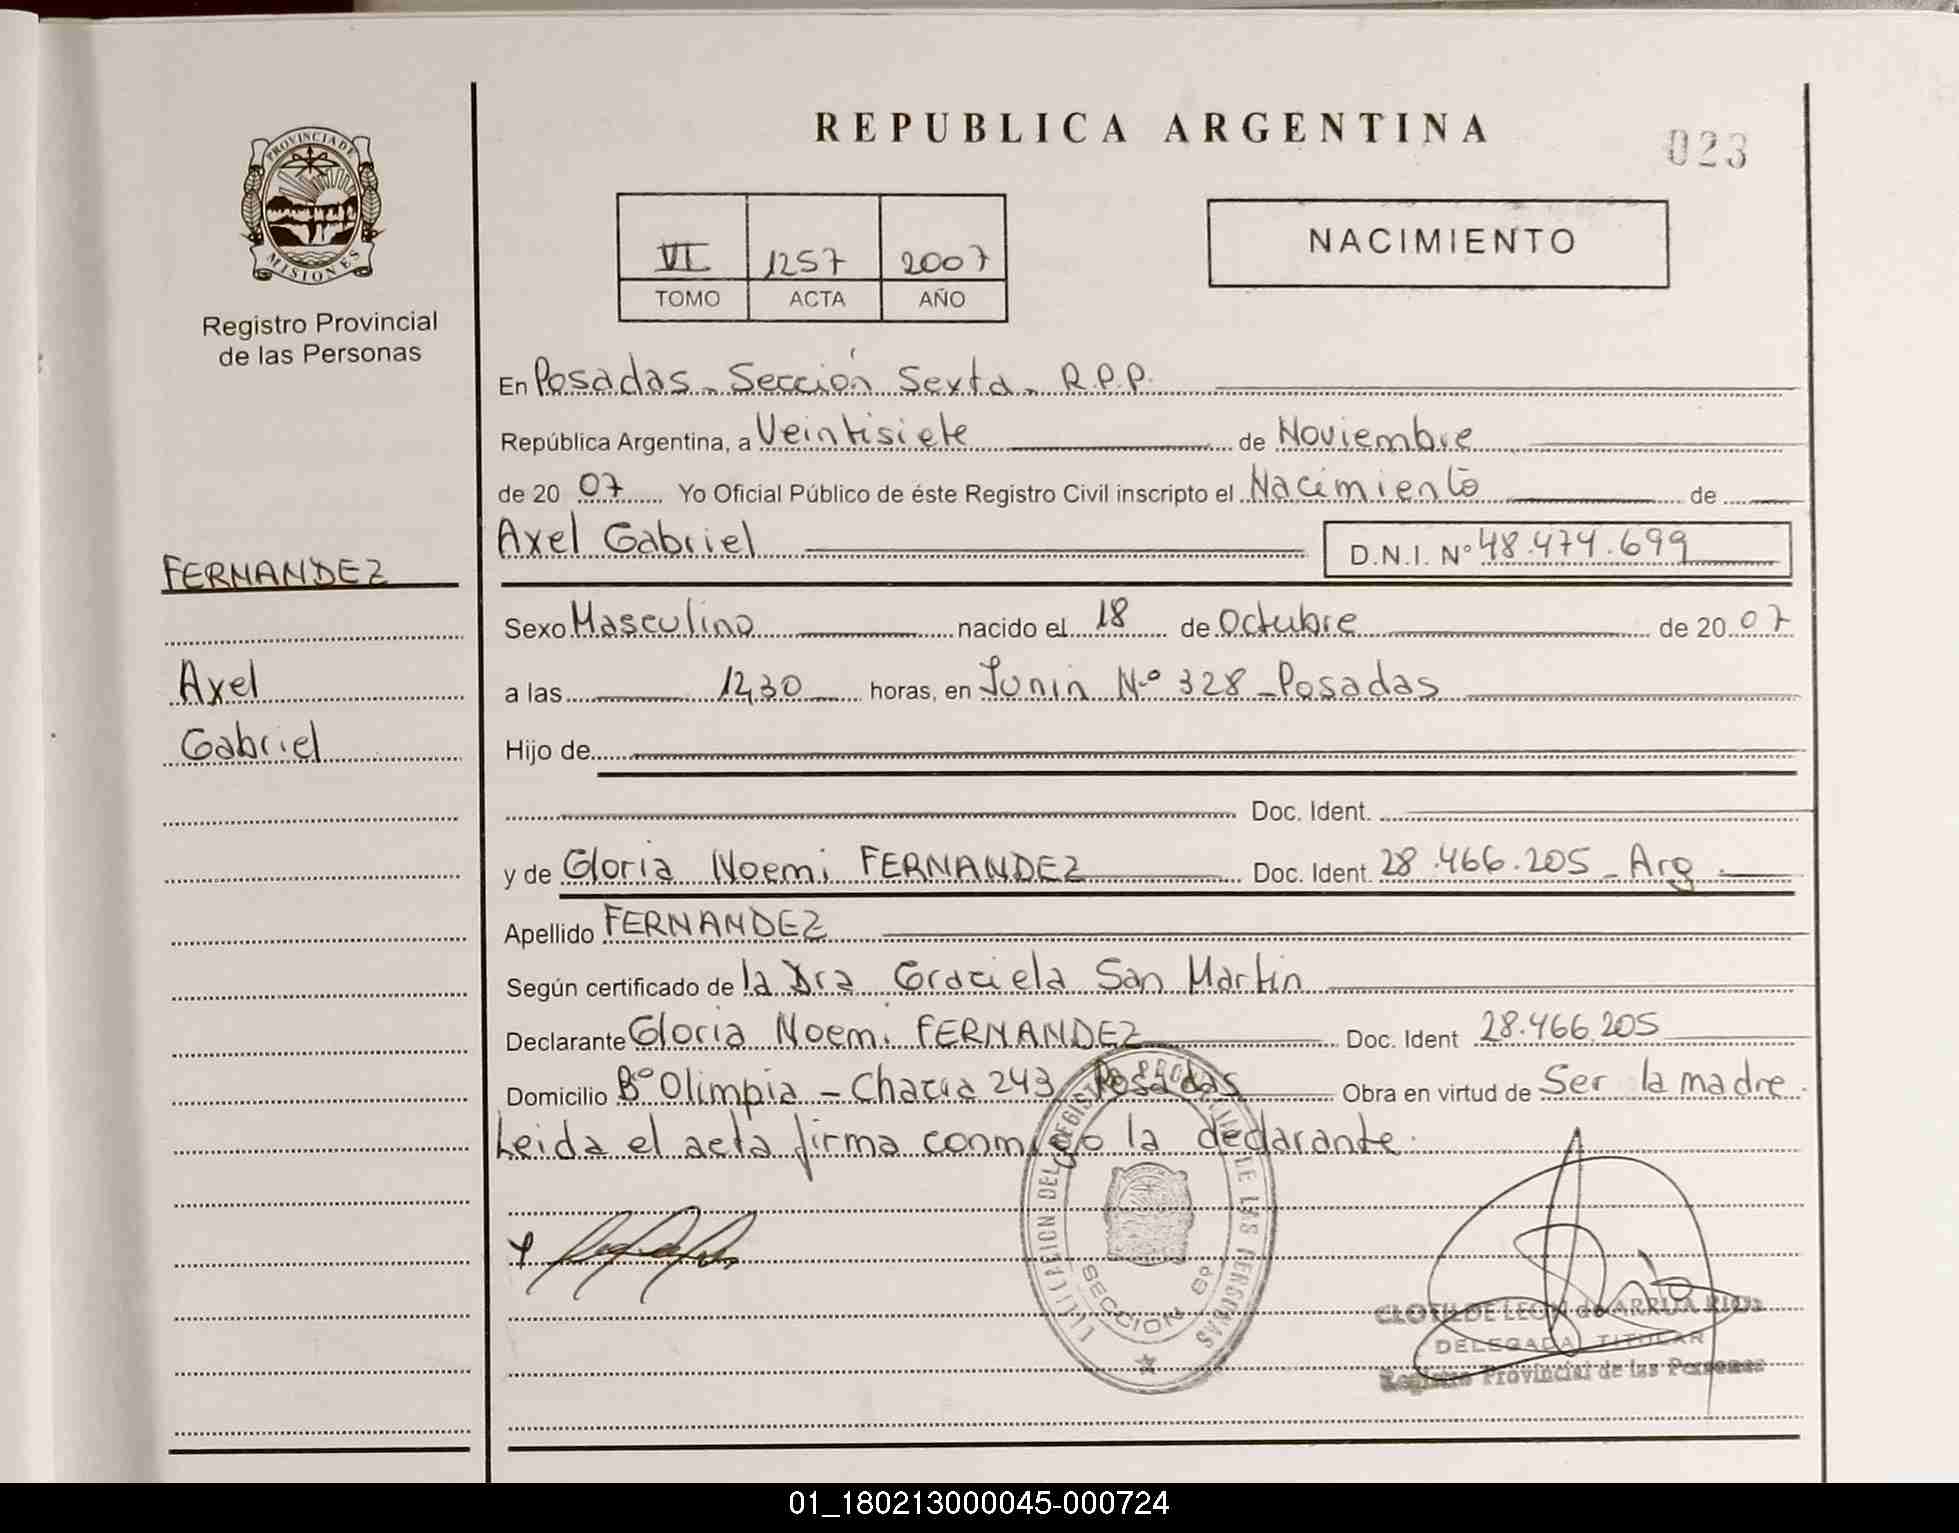 REPUBLICA ARGENTINA
023
PROVINCIA DE
MISIONES
Registro Provincial
de las Personas
VI 1257 2007
TOMO ACTA AÑO
NACIMIENTO
En Posadas - Sección Sexta - R.P.P.
República Argentina, a Veintisiete de Noviembre
de 20 07 Yo Oficial Público de éste Registro Civil inscripto el Nacimiento de
Axel Gabriel D.N.I. Nº 48.474.699
FERNANDEZ
Axel
Gabriel
Sexo Masculino nacido el 18 de Octubre de 20 07
a las 12,30 horas, en Junin Nº 328 - Posadas
Hijo de
Doc. Ident.
y de Gloria Noemi FERNANDEZ Doc. Ident. 28.466.205 - Arg.
Apellido FERNANDEZ
Según certificado de la Dra Graciela San Martin
Declarante Gloria Noemi FERNANDEZ Doc. Ident 28.466.205
Domicilio Bº Olimpia - Chacra 243 Posadas Obra en virtud de Ser la madre.
Leida el acta firma conmigo la declarante.
SECCION 6º
CLOTILDE LEON de ARRUA RIOS
DELEGADA TITULAR
Registro Provincial de las Personas
01_180213000045-000724